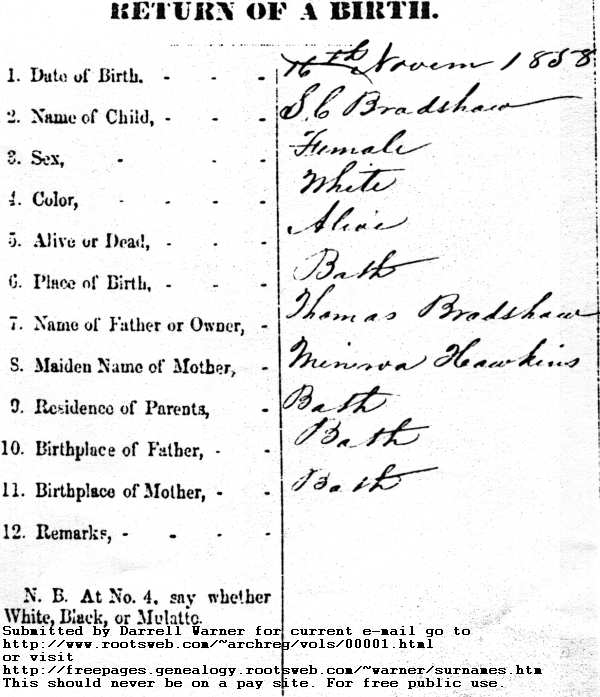 RETURN OF A BIRTH.
1. Date of Birth. - - - 16th Novem 1858
2. Name of Child, - - - S. C Bradshaw
3. Sex, - - - Female
4. Color, - - - White
5. Alive or Dead, - - - Alive
6. Place of Birth, - - - Bath
7. Name of Father or Owner, - Thomas Bradshaw
8. Maiden Name of Mother, - Minerva Hawkins
9. Residence of Parents, - Bath
10. Birthplace of Father, - - Bath
11. Birthplace of Mother, - - Bath
12. Remarks, - - - -
N. B. At No. 4, say whether
White, Black, or Mulatto.
Submitted by Darrell Warner for current e-mail go to
http://www.rootsweb.com/~archreg/vols/00001.html
or visit
http://freepages.genealogy.rootsweb.com/~warner/surnames.htm
This should never be on a pay site. For free public use.